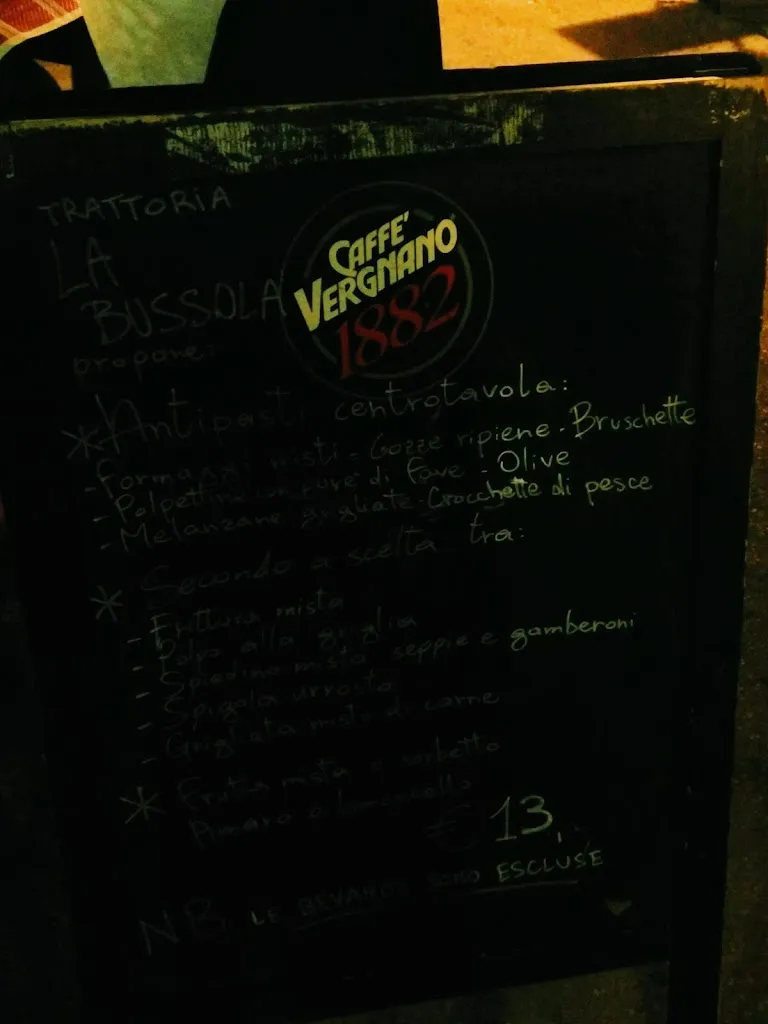 TRATTORIA
LA
BUSSOLA
propone:
CAFFE'
VERGNANO
1882
*Antipasti centrotavola:
- Formaggi misti - Cozze ripiene - Bruschette
- Polpettine con pure di fave - Olive
- Melanzane grigliate - Crocchette di pesce
* Secondo a scelta tra:
- Frittura mista
- Polpo alla griglia
- Spiedino misto seppie e gamberoni
- Spigola arrosto
- Grigliata mista di carne
* Frutta mista e sorbetto
Amaro o limoncello
€ 13,
NB LE BEVANDE SONO ESCLUSE